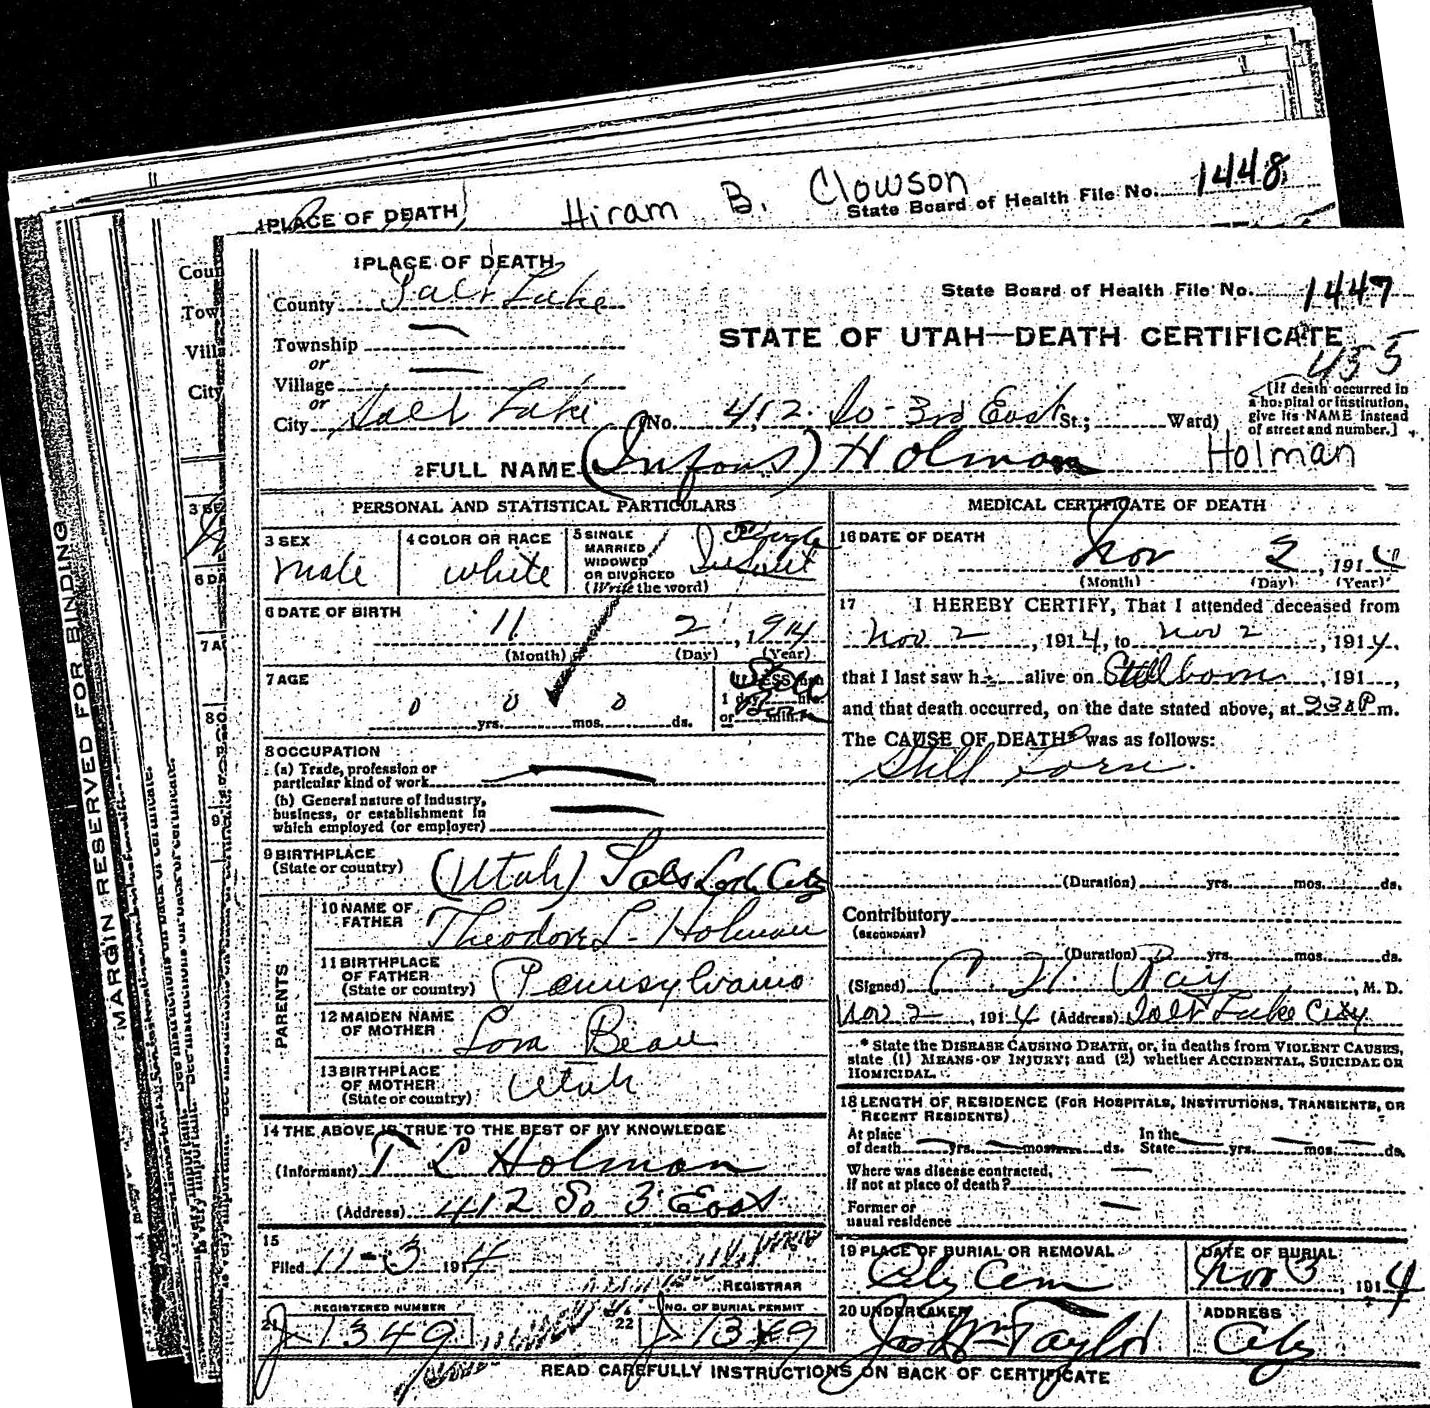 1 PLACE OF DEATH Hiram B. Clowson State Board of Health File No. 1448
1 PLACE OF DEATH
County Salt Lake State Board of Health File No. 1447
STATE OF UTAH—DEATH CERTIFICATE
455
Township —
or
Village —
or
City Salt Lake (No. 412 So - 3rd East St.; Ward)
[If death occurred in
a hospital or institution,
give its NAME instead
of street and number.]
2 FULL NAME (Infant) Holman Holman
PERSONAL AND STATISTICAL PARTICULARS
3 SEX
male
4 COLOR OR RACE
white
5 SINGLE
MARRIED
WIDOWED
OR DIVORCED
(Write the word)
Single
Infant
6 DATE OF BIRTH
11 2, 1914
(Month) (Day) (Year)
7 AGE
0 yrs. 0 mos. 0 ds.
If LESS than
1 day hrs.
or min.?
Still
Born
8 OCCUPATION
(a) Trade, profession or
particular kind of work —
(b) General nature of Industry,
business, or establishment in
which employed (or employer) —
9 BIRTHPLACE
(State or country) (Utah) Salt Lake City
PARENTS
10 NAME OF
FATHER Theodore L. Holman
11 BIRTHPLACE
OF FATHER
(State or country) Pennsylvania
12 MAIDEN NAME
OF MOTHER Lora Bean
13 BIRTHPLACE
OF MOTHER
(State or country) Utah
14 THE ABOVE IS TRUE TO THE BEST OF MY KNOWLEDGE
(Informant) T L Holman
(Address) 412 So 3 East
15
Filed 11-3 1914
REGISTRAR
21 REGISTERED NUMBER
J-1349
22 NO. OF BURIAL PERMIT
J-1349
MEDICAL CERTIFICATE OF DEATH
16 DATE OF DEATH
Nov 2, 1914
(Month) (Day) (Year)
17 I HEREBY CERTIFY, That I attended deceased from
Nov 2, 1914, to Nov 2, 1914,
that I last saw h alive on Stillborn, 191,
and that death occurred, on the date stated above, at 230 P m.
The CAUSE OF DEATH* was as follows:
Still born.
(Duration) yrs. mos. ds.
Contributory
(SECONDARY)
(Duration) yrs. mos. ds.
(Signed) C. H. Ray, M. D.
Nov 2, 1914 (Address) Salt Lake City
* State the DISEASE CAUSING DEATH, or, in deaths from VIOLENT CAUSES,
state (1) MEANS OF INJURY; and (2) whether ACCIDENTAL, SUICIDAL OR
HOMICIDAL.
18 LENGTH OF RESIDENCE (FOR HOSPITALS, INSTITUTIONS, TRANSIENTS, OR
RECENT RESIDENTS)
At place
of death — yrs. — mos. ds.
In the
State — yrs. — mos. — ds.
Where was disease contracted,
if not at place of death? —
Former or
usual residence —
19 PLACE OF BURIAL OR REMOVAL
City Cem
DATE OF BURIAL
Nov 3, 1914
20 UNDERTAKER
Jos Wm Taylor
ADDRESS
City
READ CAREFULLY INSTRUCTIONS ON BACK OF CERTIFICATE
MARGIN RESERVED FOR BINDING